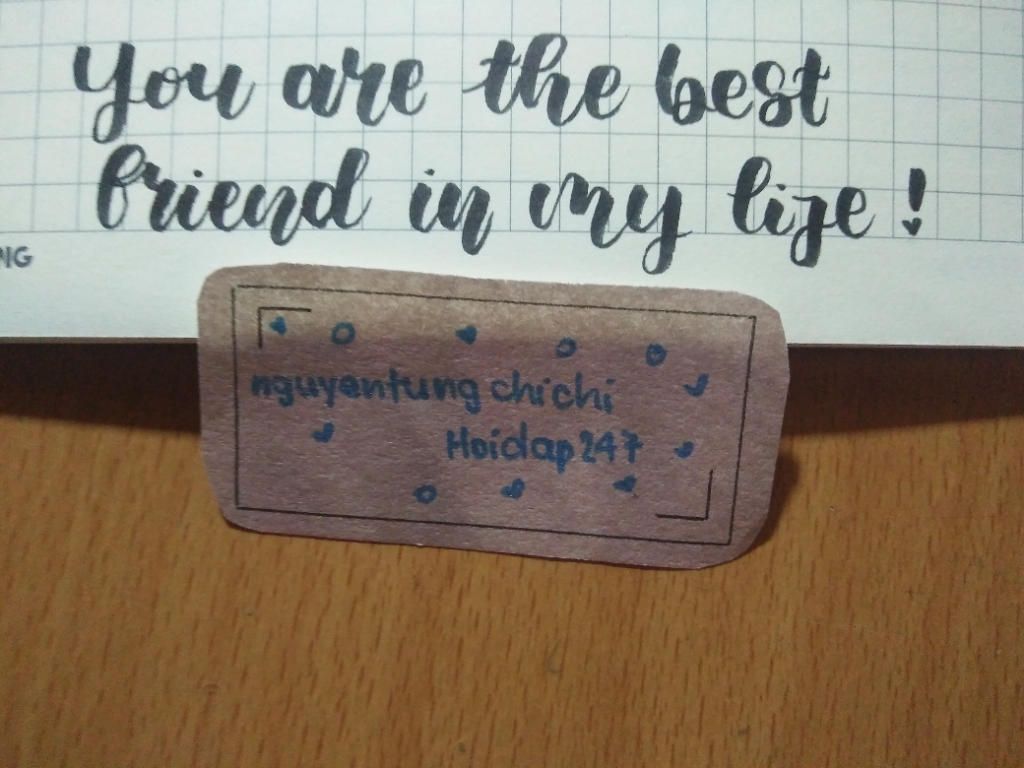 You are the best
friend in my life !
NG
nguyentung chichi
Hoidap247